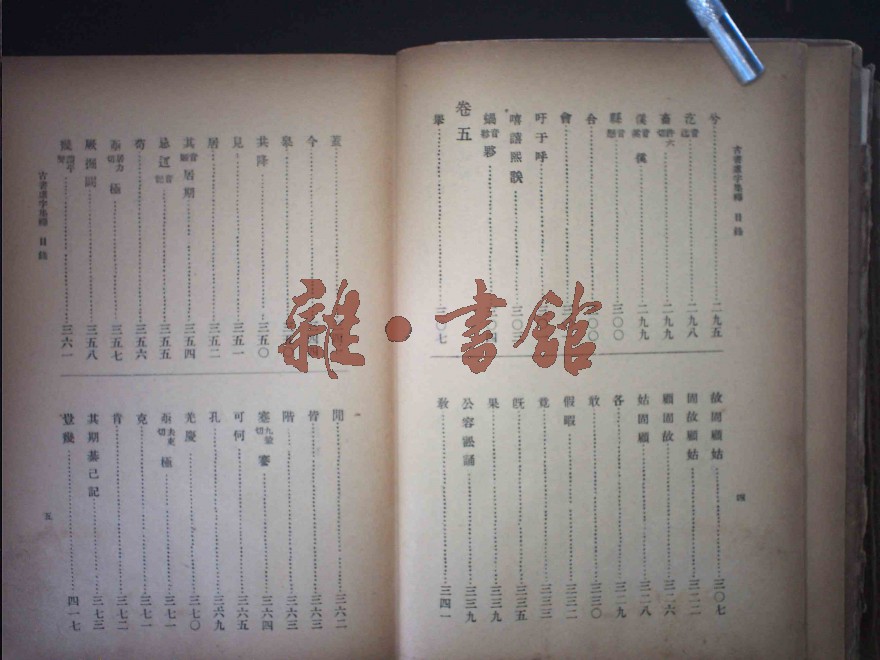 古書虛字集釋 目錄
兮 二九五
汔音迄 二九八
畜許六切 二九九
僕 二九九
縣音懸 三〇〇
合 三〇〇
會
吁于呼
嘻譆熙
夥
卷五
舉 三〇七
故固顧姑 三〇七
固故顧姑 三二二
顧固故 三二六
姑固顧 三二八
各 三二九
敢 三三〇
假暇 三三二
竟 三三三
旣 三三五
果 三三九
公容訟誦 三三九
敎 三四一
四
蓋
今
皋
共降 三五〇
見 三五一
居 三五二
其音姬居期 三五四
忌 三五五
苟 三五六
亟居力切極 三五七
厥掘闕 三五八
幾 三六一
間 三六二
皆 三六三
階 三六三
蹇九輦切謇 三六四
可何 三六五
孔 三六九
羌慶 三七〇
亟去吏切極 三七一
克 三七一
肯 三七二
其期基己記 三七三
豈幾 四一七
古書虛字集釋 目錄
五
雜·書館